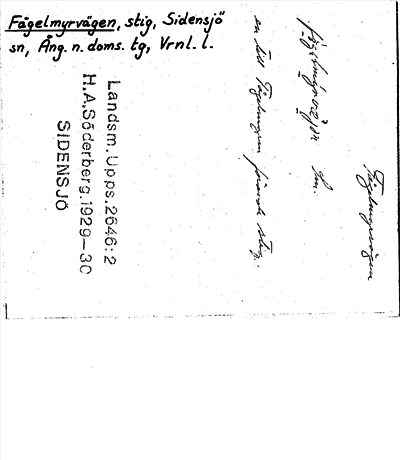 Fågelmyrvägen, stig, Sidensjö
sn, Ång. n. doms. tg, Vrnl. l.
Fågelmyrvägen
en till Fågelmyren förande stig.
Landsm. Upps. 2646:2
H.A.Söderberg.1929-30
SIDENSJÖ